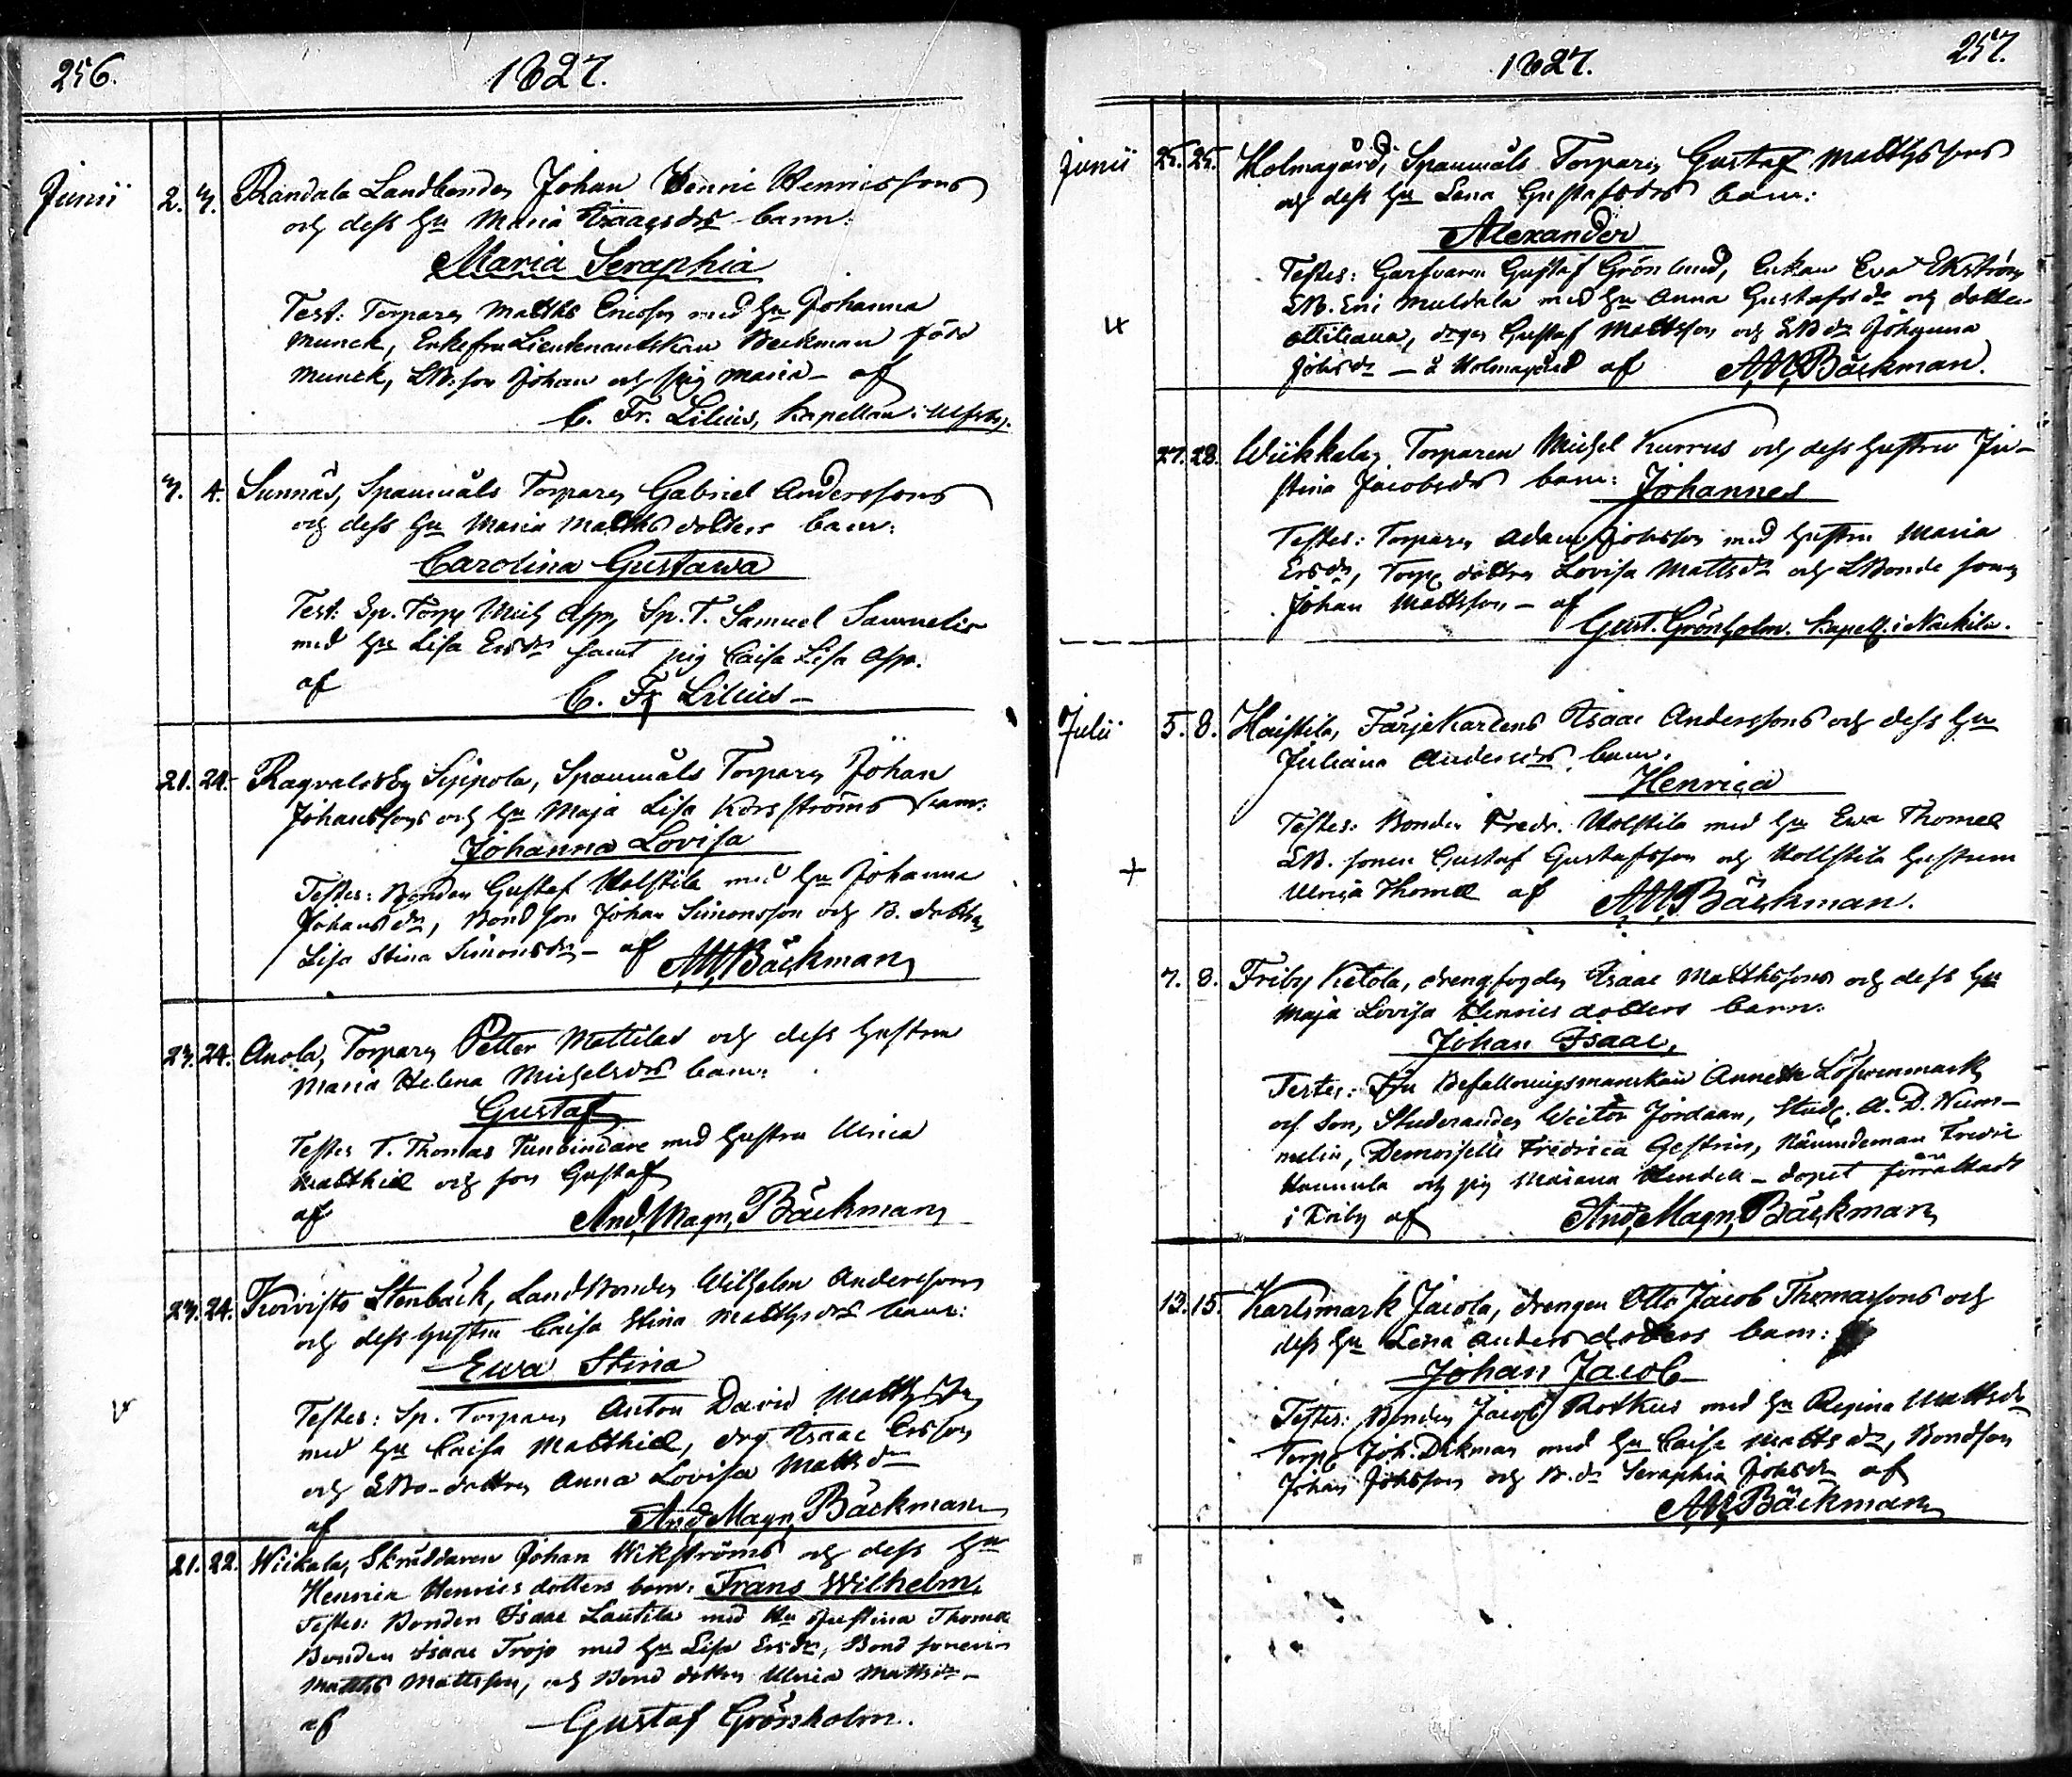 256.
1827.
Junii 2. 3. Randala Landbonden Johan Henric Henricssons
och dess Hu Maria Isaacsdrs barn:
Maria Seraphia
Test: Torparen Matths Ericsson med Hu Johanna
Munck, Enkefru Lieutenantskan Beckman född
Munck, LB. son Johan och pig Maria – af
C. Fr. Lilius, Kapellan i Ulfsby.
3. 4. Sunnäs, Spanmåls Torparen Gabriel Anderssons
och dess Hu Maria Matths dotters barn:
Carolina Gustawa
Test: Sp. Torp Mich App, Sp. T. Samuel
med Hu Lisa Ersdr samt pig Caisa Lisa App.
af C. Fr Lilius –
21. 24. Ragvaldsby Sippola, Spanmåls Torparen Johan
Johanssons och Hu Maja Lisa Korsströms barn:
Johanna Lovisa
Testes: Bonden Gustaf Holstila med Hu Johanna
Johansdr, Bond son Johan Simonsson och B. dottren
Lisa Stina Simonsdr – af A. M. Bäckman
23. 24. Anola, Torparen Petter Mattilas och dess Hustru
Maria Helena Michelsdrs barn:
Gustaf
Testes T. Thomas Tunbindare med Hustru Ulrica
Matthiæ och son Gustaf
af And. Magn. Bäckman
23. 24. Koivisto Stenbäck, LandBonden Wilhelm Anderssons
och dess Hustru Caisa Stina Matthsdrs barn:
Ewa Stina
Testes: Sp. Torparen Anton David
med Hu Caisa Matthiæ, drg Isaac Ersson
och LBo-dottren Anna Lovisa Mattsdr
af And. Magn. Bäckman
21. 22. Wiikala, Skräddaren Johan Wikströms och dess Hu
Henrica Henrics dotters barn: Frans Wilhelm.
Testes: Bonden Isaac Lautila med Hu Justina Thomæ
Bonden Isaac Trojo med Hu Lisa Ersdr, Bond sonen
Matths Mattsson, och Bond dottren Ulrica Mattsdr –
af Gustaf Grönholm.
1827.
257.
Junii 25. 25. Holmagård, Spanmåls Torparen Gustaf Matthssons
och dess Hu Lena Gustafsdrs barn:
Alexander
Testes: Garfvaren Gustaf Grönlund, Enkan Eva Ekström
LB. Eric Muldala med Hu Anna Gustafsdr och dotter
Ottiliana, drgen Gustaf Mattsson och LB dr Johanna
Johsdr – å Holmagård af A. M. Bäckman.
27. 28. Wiikkala, Torparen Michel Kurrus och dess Hustru Ju-
stina Jacobsdrs barn: Johannes
Testes: Torparen Adam Johsson med Hustru Maria
Ersdr, Torp dottren Lovisa Mattsdr och LBonde sonen
Johan Mattsson – af
Gust. Grönholm. Kapell. i Nackila.
Julii 5. 8. Haistila, Färjekarlens Isaac Anderssons och dess Hu
Juliana Andersdrs barn:
Henrica
Testes: Bonden Fredr. Holstila med Hu Ewa Thomæ
LB. sonen Gustaf Gustafsson och Hollstila Hustrun
Ulrica Thomæ af A. M. Bäckman.
7. 8. Friby Ketola, drengfogden Isaac Matthssons och dess Hu
Maja Lovisa Henrics dotters barn:
Johan Isaac,
Testes: Fru Befallningsmanskan Annette Löfwenmark
och Son, Studeranden Wictor Jordaan, Stud. A. D. Num-
melin, Demoiselle Fredrica Gestrin, Nämndeman Fredric
Hannula och pig Mariana Hendell – dopet förrättadt
i Friby af And. Magn. Bäckman
13. 15. Karlsmark Jacola, drengen Otto Jacob Thomassons och
dess Hu Lena Anders dotters barn:
Johan Jacob
Testes: Bonden Jacob Rotkus med Hu Regina Mattsdr
Torp Joh. Dikman med Hu Caisa Mattsdr, Bondson
Johan Johsson och B. dr Seraphia Johsdr af
A. M. Bäckman